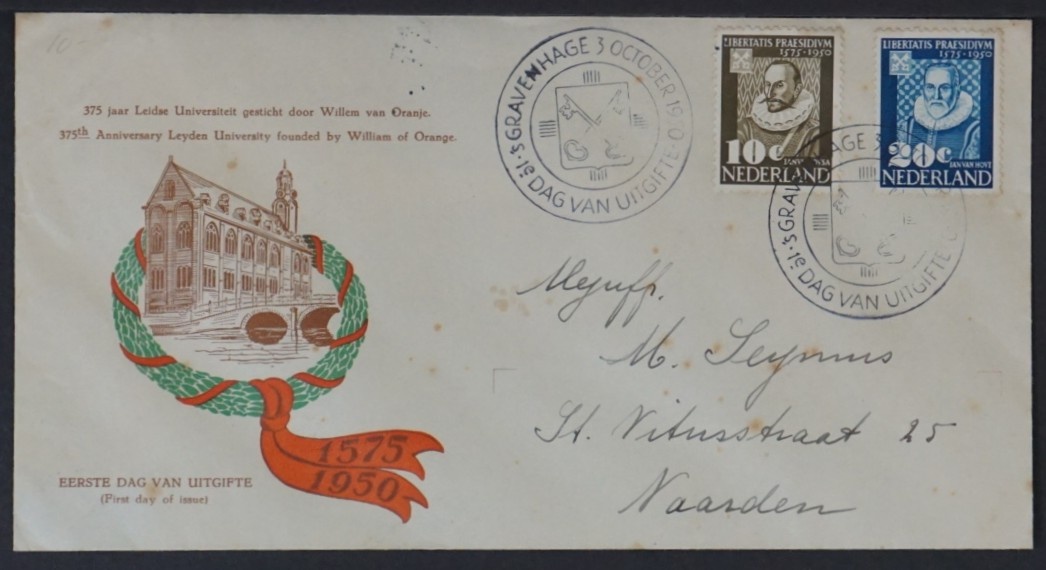 10-
375 jaar Leidse Universiteit gesticht door Willem van Oranje.
375th Anniversary Leyden University founded by William of Orange.
1575
1950
EERSTE DAG VAN UITGIFTE
(First day of issue)
'S GRAVENHAGE 3 OCTOBER 1950
1e DAG VAN UITGIFTE
LIBERTATIS PRAESIDIVM
1575-1950
10c
NEDERLAND
LIBERTATIS PRAESIDIVM
1575-1950
20c
JAN VAN HOVT
NEDERLAND
'S GRAVENHAGE 3 OC
1e DAG VAN UITGIFTE
Mejuffr.
M. Seynus
St. Vitusstraat 25
Naarden